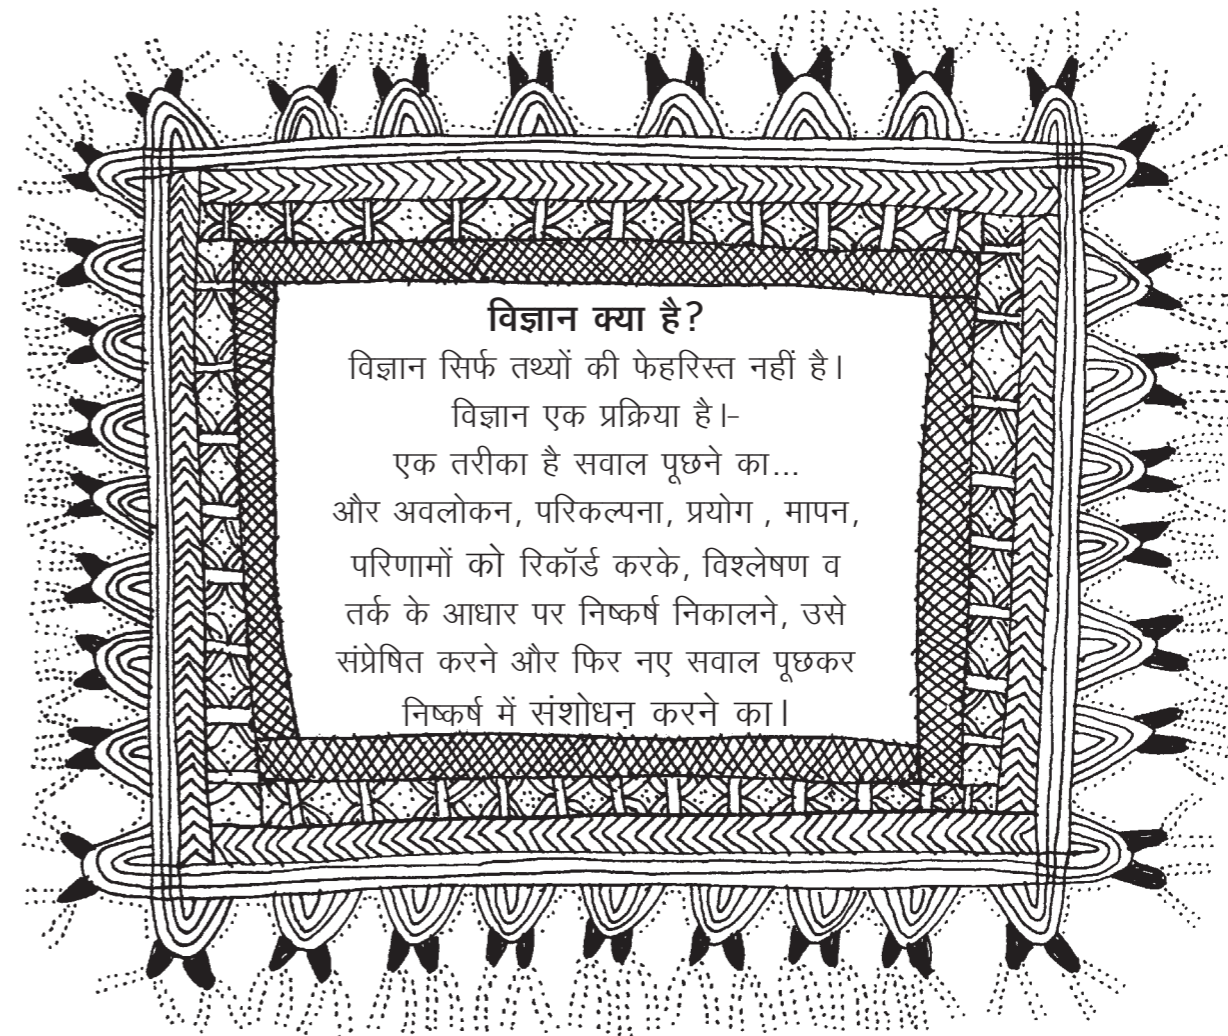 विज्ञान क्या है?
विज्ञान सिर्फ तथ्यों की फेहरिस्त नहीं है।
विज्ञान एक प्रक्रिया है।–
एक तरीका है सवाल पूछने का...
और अवलोकन, परिकल्पना, प्रयोग , मापन,
परिणामों को रिकॉर्ड करके, विश्लेषण व
तर्क के आधार पर निष्कर्ष निकालने, उसे
संप्रेषित करने और फिर नए सवाल पूछकर
निष्कर्ष में संशोधन करने का।